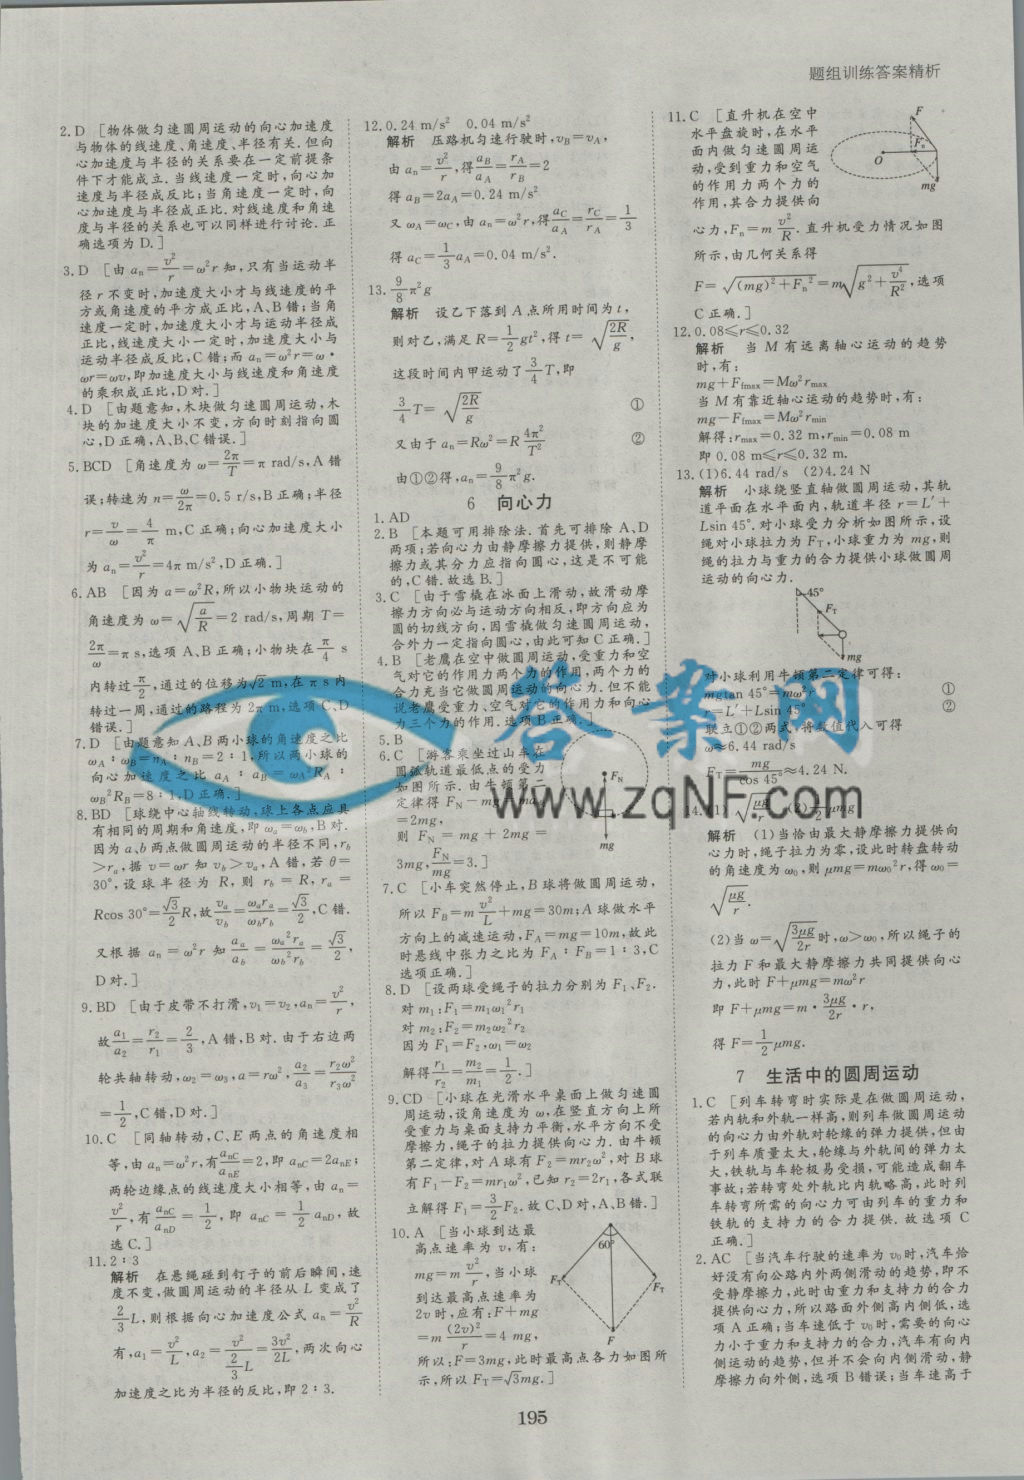 题组训练答案精析
2.D [物体做匀速圆周运动的向心加速度
与物体的线速度、角速度、半径有关.但向
心加速度与半径的关系要在一定前提条
件下才能成立.当线速度一定时,向心加
速度与半径成反比;当角速度一定时,向
心加速度与半径成正比.对线速度和角速
度与半径的关系也可以同样进行讨论.正
确选项为D.]
3.D [由aₙ=v²/r=ω²r知,只有当运动半
径r不变时,加速度大小才与线速度的平
方或角速度的平方成正比,A、B错;当角
速度一定时,加速度大小才与运动半径成
正比,线速度大小一定时,加速度大小与
运动半径成反比,C错;而aₙ=ω²r=ω·
ωr=ωv,即加速度大小与线速度和角速度
的乘积成正比,D对.]
4.D [由题意知,木块做匀速圆周运动,木
块的加速度大小不变,方向时刻指向圆
心,D正确,A、B、C错误.]
5.BCD [角速度为ω=2π/T=π rad/s,A错
误;转速为n=ω/2π=0.5 r/s,B正确;半径
r=v/ω=4/π m,C正确;向心加速度大小
为aₙ=v²/r=4π m/s²,D正确.]
6.AB [因为a=ω²R,所以小物块运动的
角速度为ω=√(a/R)=2 rad/s,周期T=
2π/ω=π s,选项A、B正确;小物块在π/4 s
内转过π/2,通过的位移为√2 m,在π s内
转过一周,通过的路程为2π m,选项C、D
错误.]
7.D [由题意知A、B两小球的角速度之比
ωA∶ωB=nA∶nB=2∶1,所以两小球的
向心加速度之比aA∶aB=ωA²RA∶
ωB²RB=8∶1,D正确.]
8.BD [球绕中心轴线转动,球上各点应具
有相同的周期和角速度,即ωa=ωb,B对.
因为a、b两点做圆周运动的半径不同,rb
>ra,据v=ωr知vb>va,A错,若θ=
30°,设球半径为R,则rb=R,ra=
Rcos 30°=√3/2 R,故va/vb=ωara/ωbrb=√3/2,C错.
又根据aₙ=ω²r知aa/ab=ωa²ra/ωb²rb=√3/2,
D对.]
9.BD [由于皮带不打滑,v₁=v₂,aₙ=v²/r,
故a₁/a₂=r₂/r₁=2/3,A错,B对.由于右边两
轮共轴转动,ω₂=ω₃,a=rω²,a₂/a₃=r₂ω²/r₃ω²
=1/2,C错,D对.]
10.C [同轴转动,C、E两点的角速度相
等,由aₙ=ω²r,有anC/anE=2,即anC=2anE;
两轮边缘点的线速度大小相等,由aₙ=
v²/r,有anC/anD=1/2,即anC=1/2 anD,故
选C.]
11.2∶3
解析 在悬绳碰到钉子的前后瞬间,速
度不变,做圆周运动的半径从L变成了
2/3 L,则根据向心加速度公式aₙ=v²/R
有,a₁=v²/L,a₂=v²/(2/3 L)=3v²/2L,两次向心
加速度之比为半径的反比,即2∶3.
12.0.24 m/s² 0.04 m/s²
解析 压路机匀速行驶时,vB=vA,
由aₙ=v²/r,得aB/aA=rA/rB=2
得aB=2aA=0.24 m/s²
又ωA=ωC,由aₙ=ω²r,得aC/aA=rC/rA=1/3
得aC=1/3 aA=0.04 m/s².
13.9/8 π²g
解析 设乙下落到A点所用时间为t,
则对乙,满足R=1/2 gt²,得t=√(2R/g),
这段时间内甲运动了3/4 T,即
3/4 T=√(2R/g) ①
又由于aₙ=Rω²=R 4π²/T² ②
由①②得,aₙ=9/8 π²g.
6 向心力
1.AD
2.B [本题可用排除法.首先可排除A、D
两项;若向心力由静摩擦力提供,则静摩
擦力或其分力应指向圆心,这是不可能
的,C错.故选B.]
3.C [由于雪橇在冰面上滑动,故滑动摩
擦力方向必与运动方向相反,即方向应为
圆的切线方向,因雪橇做匀速圆周运动,
合外力一定指向圆心,由此可知C正确.]
4.B [老鹰在空中做圆周运动,受重力和空
气对它的作用力两个力的作用,两个力的
合力充当它做圆周运动的向心力.但不能
说老鹰受重力、空气对它的作用力和向心
力三个力的作用.选项B正确.]
5.B
6.C [游客乘坐过山车在
圆弧轨道最低点的受力
如图所示.由牛顿第二
定律得FN-mg=ma
=2mg,
则FN=mg+2mg=
3mg,FN/mg=3.]
FN
mg
7.C [小车突然停止,B球将做圆周运动,
所以FB=m v²/L+mg=30m;A球做水平
方向上的减速运动,FA=mg=10m,故此
时悬线中张力之比为FA∶FB=1∶3,C
选项正确.]
8.D [设两球受绳子的拉力分别为F₁、F₂.
对m₁:F₁=m₁ω₁²r₁
对m₂:F₂=m₂ω₂²r₂
因为F₁=F₂,ω₁=ω₂
解得r₁/r₂=m₂/m₁=1/2.]
9.CD [小球在光滑水平桌面上做匀速圆
周运动,设角速度为ω,在竖直方向上所
受重力与桌面支持力平衡,水平方向不受
摩擦力,绳子的拉力提供向心力.由牛顿
第二定律,对A球有F₂=mr₂ω²,对B球
有F₁-F₂=mr₁ω²,已知r₂=2r₁,各式联
立解得F₁=3/2 F₂.故C、D对,A、B错.]
10.A [当小球到达最
高点速率为v,有:
mg=m v²/r,当小球
到达最高点速率为
2v时,应有:F+mg
=m (2v)²/r=4 mg,
所以:F=3mg,此时最高点各力如图所
示,所以FT=√3mg.]
60°
FT
FT
F
11.C [直升机在空中
水平盘旋时,在水平
面内做匀速圆周运
动,受到重力和空气
的作用力两个力的
作用,其合力提供向
心力,Fn=m v²/R.直升机受力情况如图
所示,由几何关系得
F=√((mg)²+Fn²)=m√(g²+v⁴/R²),选项
C正确.]
F
Fn
O
mg
12.0.08≤r≤0.32
解析 当M有远离轴心运动的趋势
时,有:
mg+Ffmax=Mω²rmax
当M有靠近轴心运动的趋势时,有:
mg-Ffmax=Mω²rmin
解得:rmax=0.32 m,rmin=0.08 m
即0.08 m≤r≤0.32 m.
13.(1)6.44 rad/s (2)4.24 N
解析 小球绕竖直轴做圆周运动,其轨
道平面在水平面内,轨道半径r=L′+
Lsin 45°.对小球受力分析如图所示,设
绳对小球拉力为FT,小球重力为mg,则
绳的拉力与重力的合力提供小球做圆周
运动的向心力.
45°
FT
mg
对小球利用牛顿第二定律可得:
mgtan 45°=mω²r ①
r=L′+Lsin 45° ②
联立①②两式,将数值代入可得
ω≈6.44 rad/s
FT=mg/cos 45°≈4.24 N.
14.(1)√(μg/r) (2)1/2 μmg
解析 (1)当恰由最大静摩擦力提供向
心力时,绳子拉力为零,设此时转盘转动
的角速度为ω₀,则μmg=mω₀²r,得ω₀=
√(μg/r).
(2)当ω=√(3μg/2r)时,ω>ω₀,所以绳子的
拉力F和最大静摩擦力共同提供向心
力,此时F+μmg=mω²r
即F+μmg=m·3μg/2r·r,
得F=1/2 μmg.
7 生活中的圆周运动
1.C [列车转弯时实际是在做圆周运动,
若内轨和外轨一样高,则列车做圆周运动
的向心力由外轨对轮缘的弹力提供,但由
于列车质量太大,轮缘与外轨间的弹力太
大,铁轨与车轮极易受损,可能造成翻车
事故;若转弯处外轨比内轨略高,此时列
车转弯所需的向心力可由列车的重力和
铁轨的支持力的合力提供.故选项C
正确.]
2.AC [当汽车行驶的速率为v₀时,汽车恰
好没有向公路内外两侧滑动的趋势,即不
受静摩擦力,此时由重力和支持力的合力
提供向心力,所以路面外侧高内侧低,选
项A正确;当车速低于v₀时,需要的向心
力小于重力和支持力的合力,汽车有向内
侧运动的趋势,但并不会向内侧滑动,静
摩擦力向外侧,选项B错误;当车速高于
答案网
www.zqNF.com
195